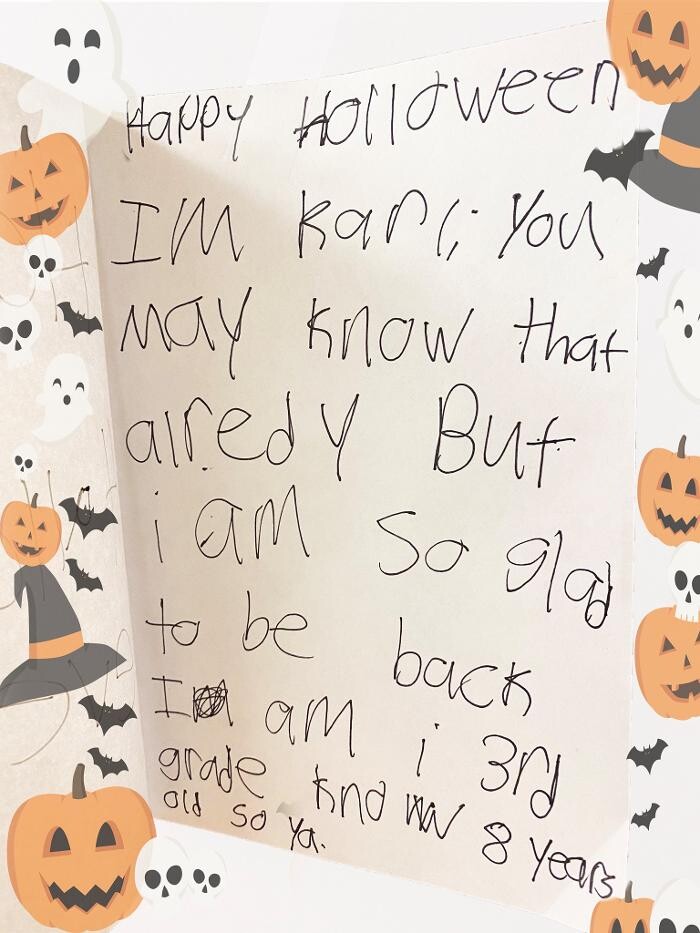 Happy Holloween
I'M Karli You
May know that
alredy But
i am so glad
to be back
I am i 3rd
grade know 8 years
old so ya.